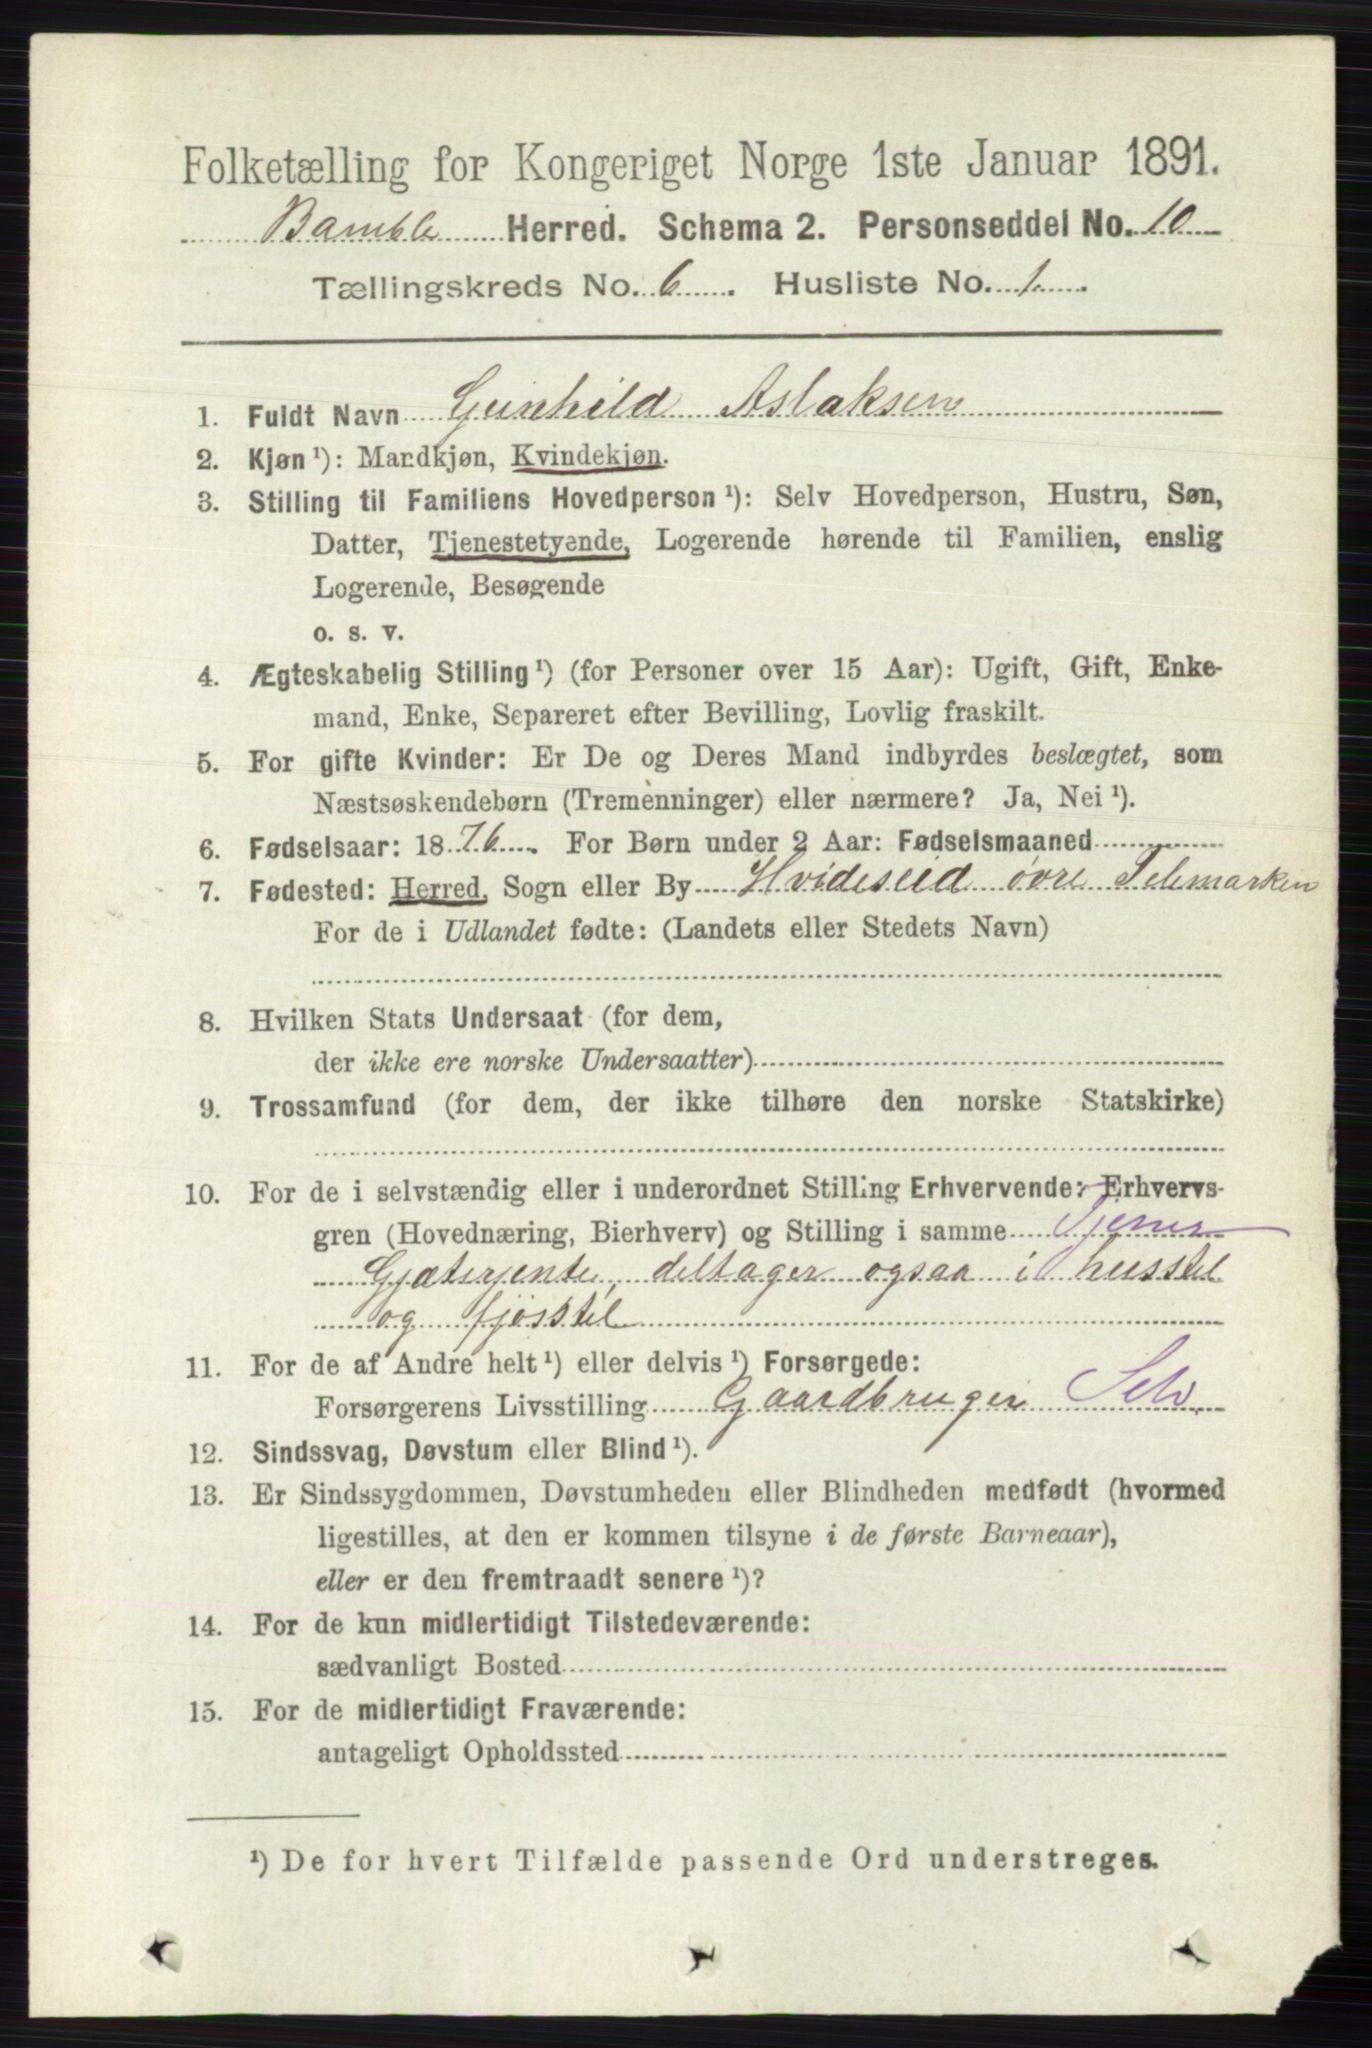 Folketælling for Kongeriget Norge 1ste Januar 1891.
Bamble Herred. Schema 2. Personseddel No. 10
Tællingskreds No. 6. Husliste No. 1.
1. Fuldt Navn Gunhild Aslaksen
2. Kjøn ¹): Mandkjøn, Kvindekjøn.
3. Stilling til Familiens Hovedperson ¹): Selv Hovedperson, Hustru, Søn,
Datter, Tjenestetyende, Logerende hørende til Familien, enslig
Logerende, Besøgende
o. s. v.
4. Ægteskabelig Stilling ¹) (for Personer over 15 Aar): Ugift, Gift, Enke-
mand, Enke, Separeret efter Bevilling, Lovlig fraskilt.
5. For gifte Kvinder: Er De og Deres Mand indbyrdes beslægtet, som
Næstsøskendebørn (Tremenninger) eller nærmere? Ja, Nei ¹).
6. Fødselsaar: 1876. For Børn under 2 Aar: Fødselsmaaned
7. Fødested: Herred, Sogn eller By Hvideseid øvre Telemarken
For de i Udlandet fødte: (Landets eller Stedets Navn)
8. Hvilken Stats Undersaat (for dem,
der ikke ere norske Undersaatter)
9. Trossamfund (for dem, der ikke tilhøre den norske Statskirke)
10. For de i selvstændig eller i underordnet Stilling Erhvervende: Erhvervs-
gren (Hovednæring, Bierhverv) og Stilling i samme
Gjæterjente, deltager ogsaa i husstel
og fjøsstel
11. For de af Andre helt ¹) eller delvis ¹) Forsørgede:
Forsørgerens Livsstilling Gaardbruger Selv
12. Sindssvag, Døvstum eller Blind ¹).
13. Er Sindssygdommen, Døvstumheden eller Blindheden medfødt (hvormed
ligestilles, at den er kommen tilsyne i de første Barneaar),
eller er den fremtraadt senere ¹)?
14. For de kun midlertidigt Tilstedeværende:
sædvanligt Bosted
15. For de midlertidigt Fraværende:
antageligt Opholdssted
¹) De for hvert Tilfælde passende Ord understreges.